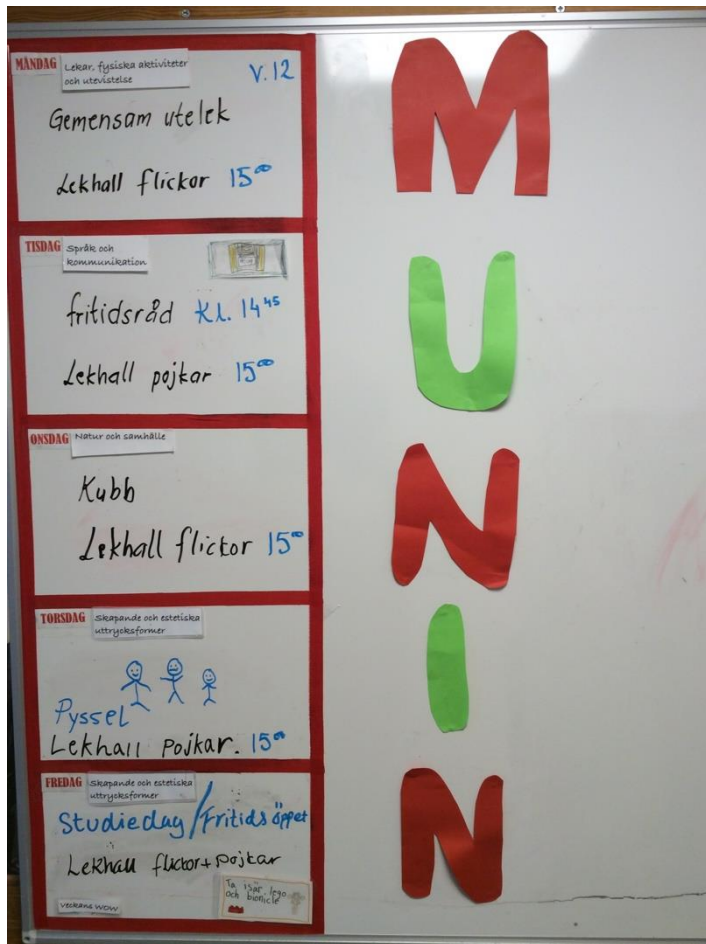 MÅNDAG Lekar, fysiska aktiviteter
och utevistelse
V.12
Gemensam utelek
Lekhall flickor 15⁰⁰
TISDAG Språk och
kommunikation
fritidsråd Kl. 14⁴⁵
Lekhall pojkar 15⁰⁰
ONSDAG Natur och samhälle
Kubb
Lekhall flickor 15⁰⁰
TORSDAG Skapande och estetiska
uttrycksformer
Pyssel
Lekhall pojkar. 15⁰⁰
FREDAG Skapande och estetiska
uttrycksformer
Studiedag/Fritids öppet
Lekhall flickor+pojkar
Ta isär lego
och bionicle
veckans WOW
M
U
N
I
N